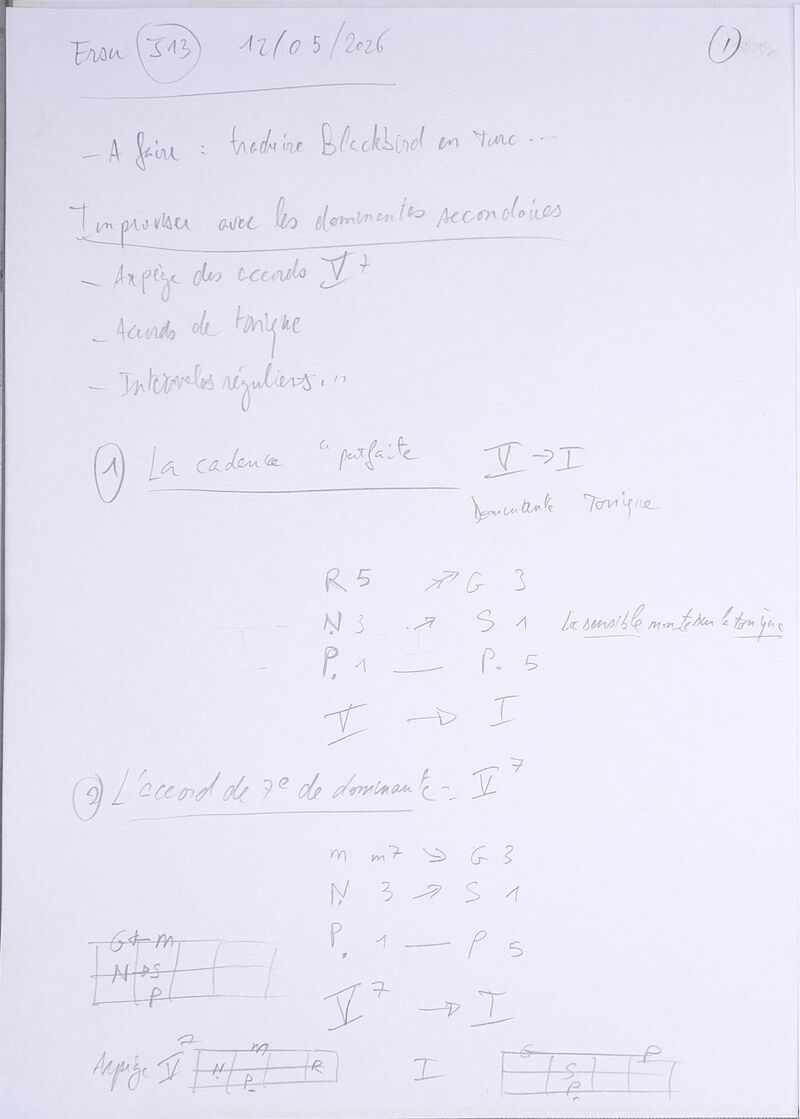 Ersu J13 12/05/2026 1
- A faire : traduire Blackbird en turc ...
Improviser avec les dominantes secondaires
- Arpège des accords V7
- Accords de tonique
- Intervalos réguliers...
1 La cadence "parfaite V → I
Dominante Tonique
R 5 ↗ G 3
Ṇ 3 ↗ S 1 La sensible monte sur la tonique
P. 1 — P. 5
V → I
2 L'accord de 7e de dominante = V7
m m7 ↘ G 3
Ṇ 3 ↗ S 1
P. 1 — P 5
V7 → I
G ← m
N → S
P
Arpège V7 m N P. R I G S P. P